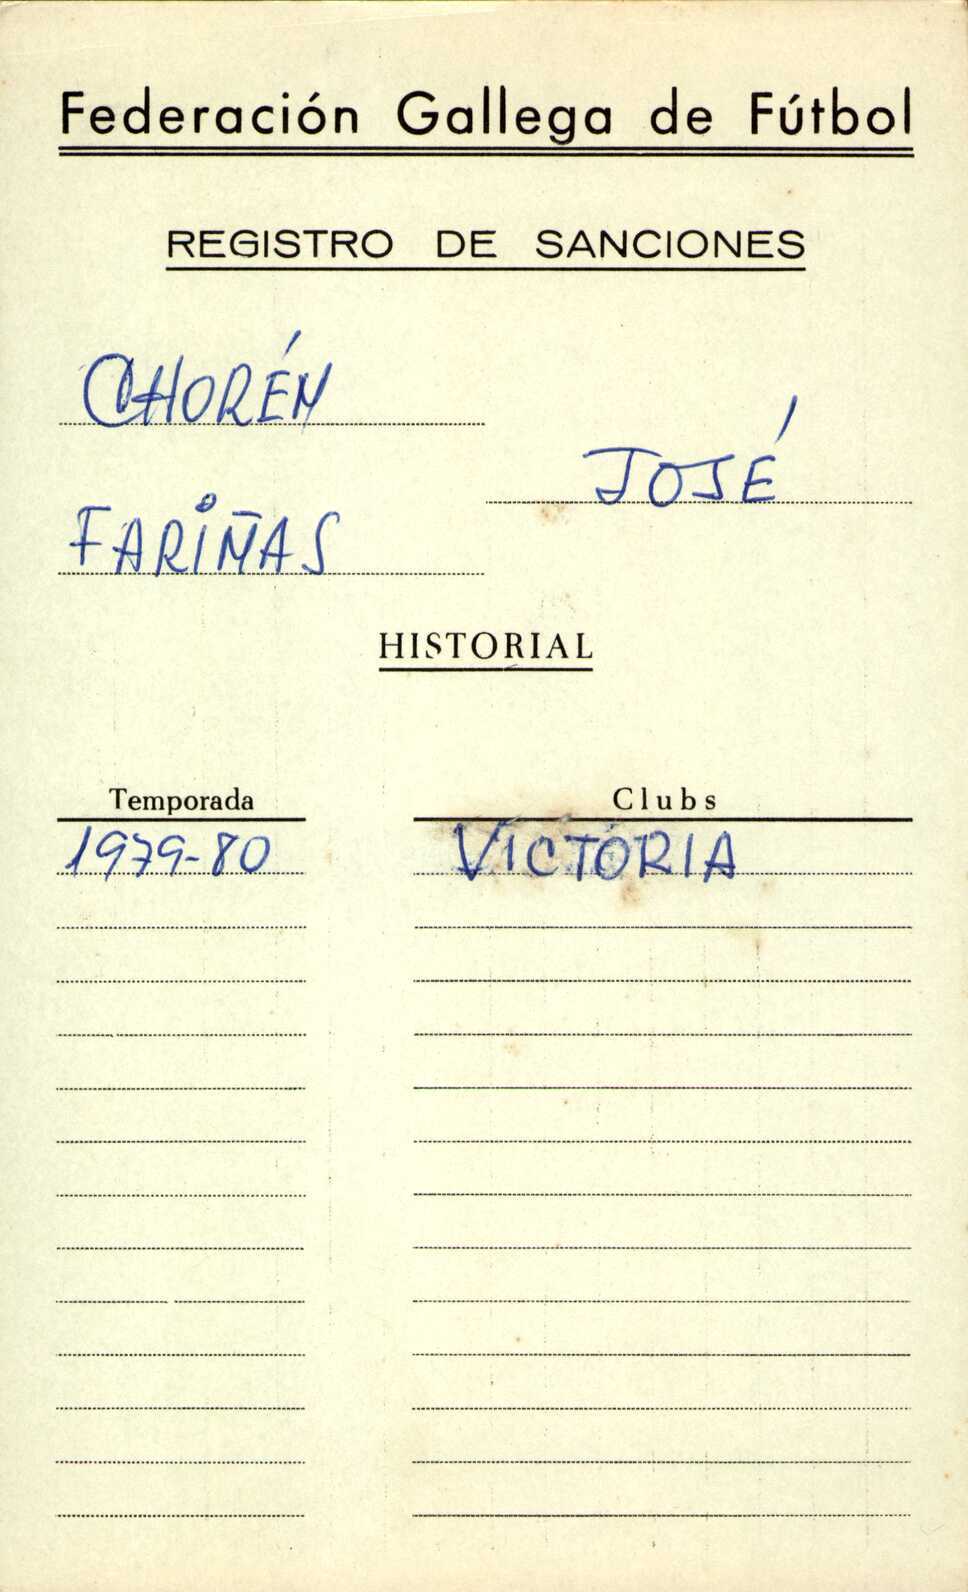 Federación Gallega de Fútbol
REGISTRO DE SANCIONES
CHORÉN
JOSÉ
FARIÑAS
HISTORIAL
Temporada Clubs
1979-80 VICTORIA